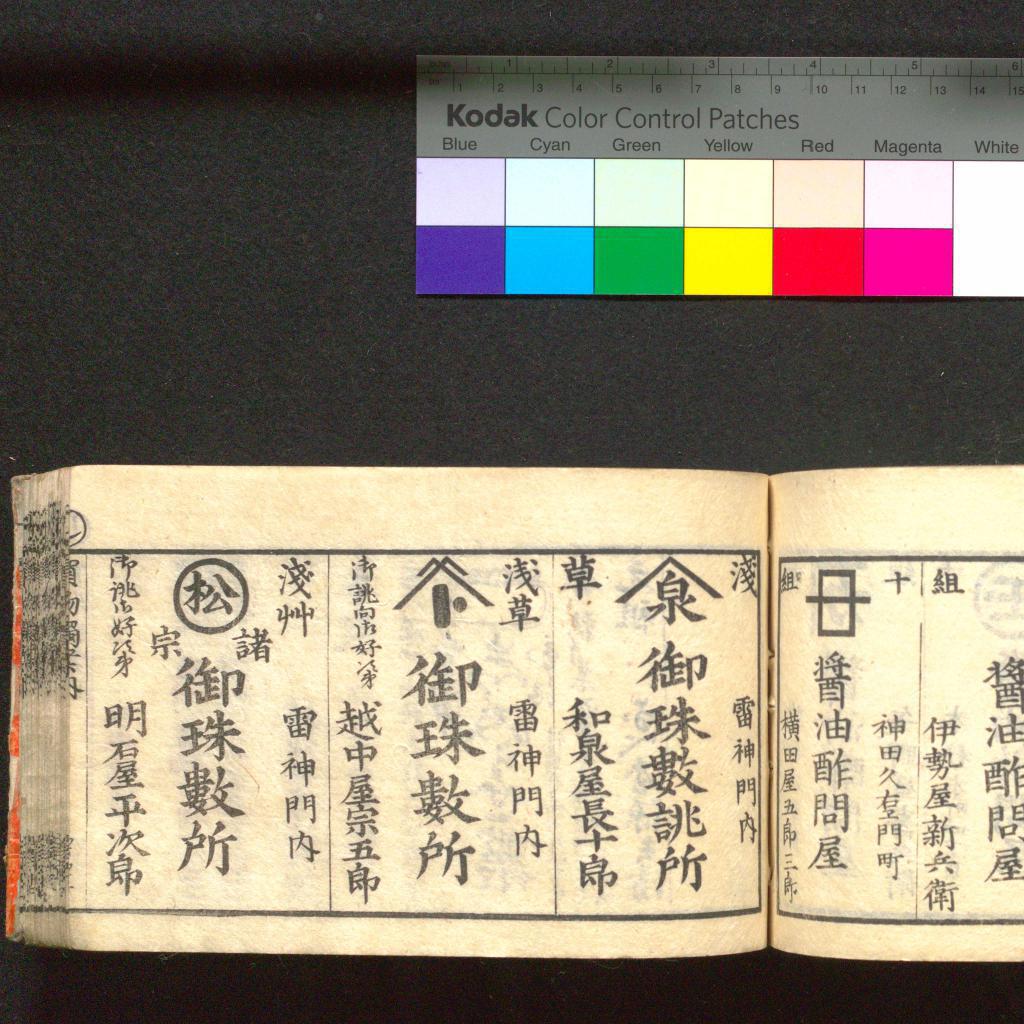 Kodak Color Control Patches
Blue Cyan Green Yellow Red Magenta White
醤油酢問屋
組
伊勢屋新兵衛
十
神田久右エ門町
醤油酢問屋
組
横田屋五郎三郎
淺
雷神門内
泉
御珠數誂所
草
和泉屋長十郎
浅草
雷神門内
御珠數所
御誂向御好次第
越中屋宗五郎
淺艸
雷神門内
諸
松
御珠數所
宗
御誂御好次第
明石屋平次郎